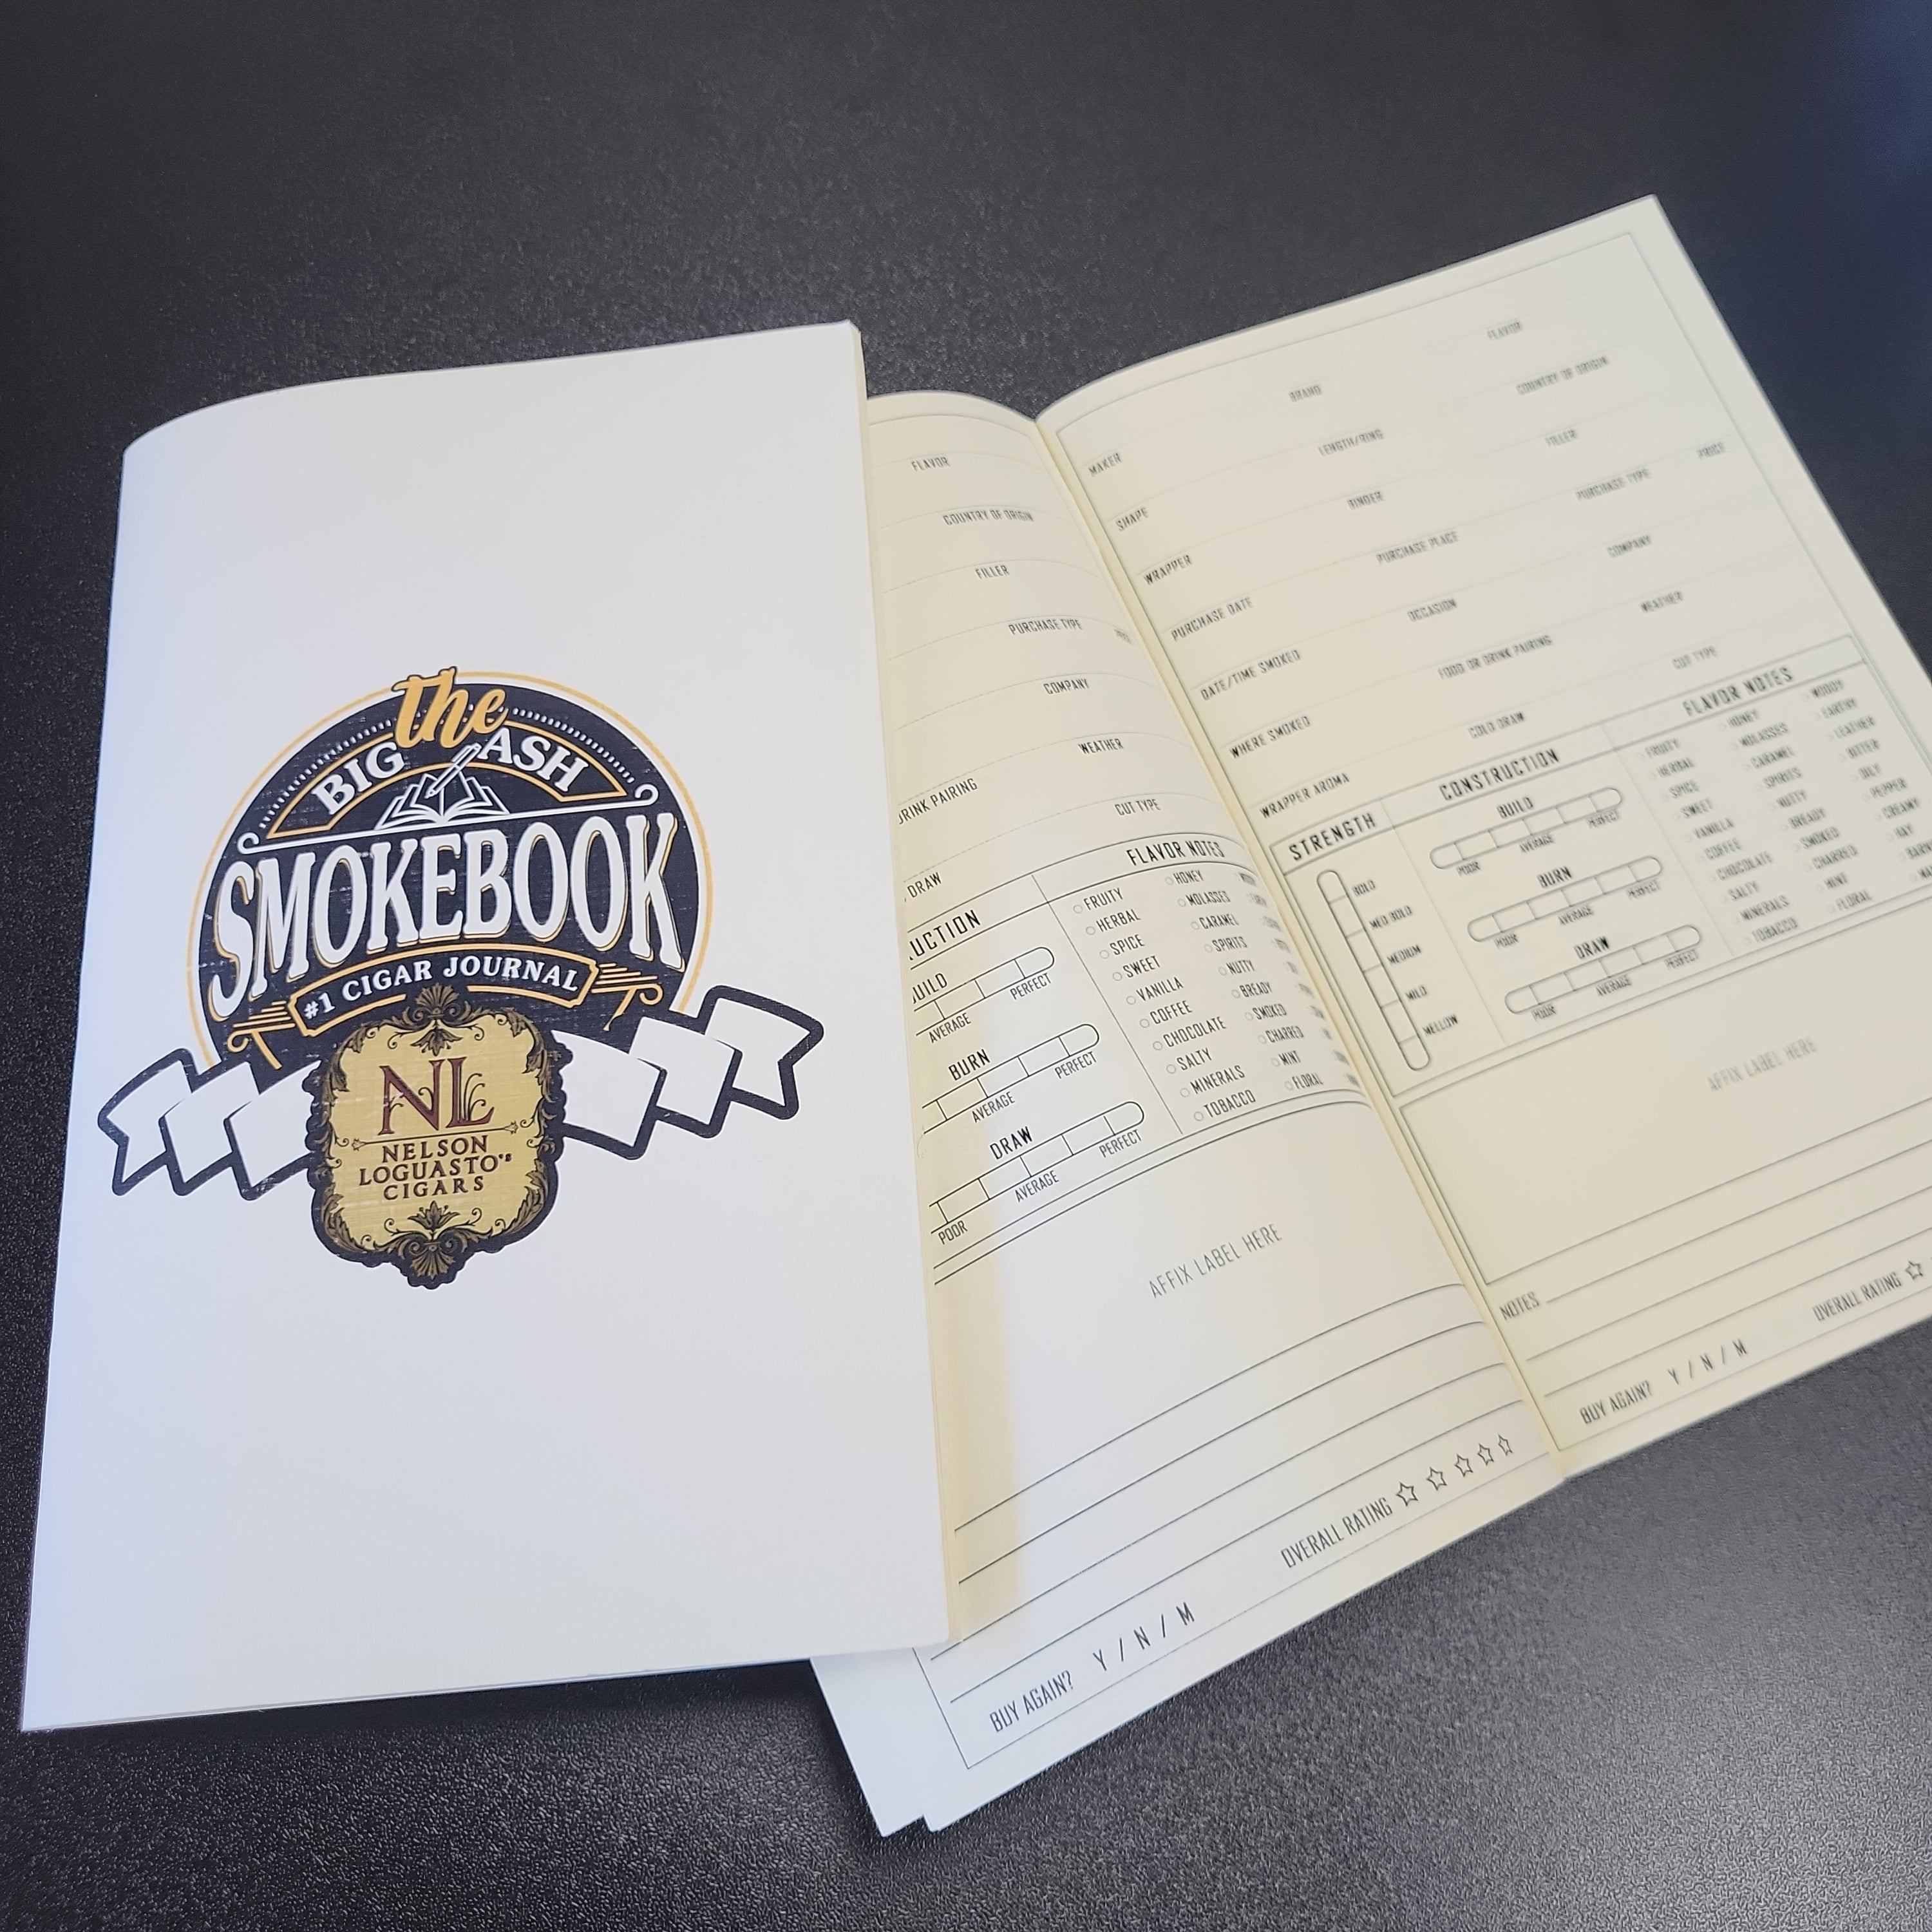 the
BIG ASH
SMOKEBOOK
#1 CIGAR JOURNAL
NL
NELSON
LOGUASTO'S
CIGARS
FLAVOR
COUNTRY OF ORIGIN
FILLER
PURCHASE TYPE
COMPANY
WEATHER
DRINK PAIRING
CUT TYPE
DRAW
UCTION
FLAVOR NOTES
UILD
AVERAGE PERFECT
BURN
AVERAGE PERFECT
DRAW
POOR AVERAGE PERFECT
FRUITY HONEY
HERBAL MOLASSES
SPICE CARAMEL
SWEET SPIRITS
VANILLA NUTTY
COFFEE BREADY
CHOCOLATE SMOKED
SALTY CHARRED
MINERALS MINT
TOBACCO FLORAL
AFFIX LABEL HERE
BUY AGAIN? Y / N / M OVERALL RATING
MAKER BRAND FLAVOR
SHAPE LENGTH/RING COUNTRY OF ORIGIN
WRAPPER BINDER FILLER
PURCHASE DATE PURCHASE PLACE PURCHASE TYPE PRICE
DATE/TIME SMOKED OCCASION COMPANY
WHERE SMOKED FOOD OR DRINK PAIRING WEATHER
WRAPPER AROMA COLD DRAW CUT TYPE
STRENGTH CONSTRUCTION FLAVOR NOTES
BOLD
MED BOLD
MEDIUM
MILD
MELLOW
BUILD
POOR AVERAGE PERFECT
BURN
POOR AVERAGE PERFECT
DRAW
POOR AVERAGE PERFECT
FRUITY HONEY WOODY
HERBAL MOLASSES EARTHY
SPICE CARAMEL LEATHER
SWEET SPIRITS BITTER
VANILLA NUTTY OILY
COFFEE BREADY PEPPER
CHOCOLATE SMOKED CREAMY
SALTY CHARRED HAY
MINERALS MINT
TOBACCO FLORAL
AFFIX LABEL HERE
NOTES
BUY AGAIN? Y / N / M OVERALL RATING